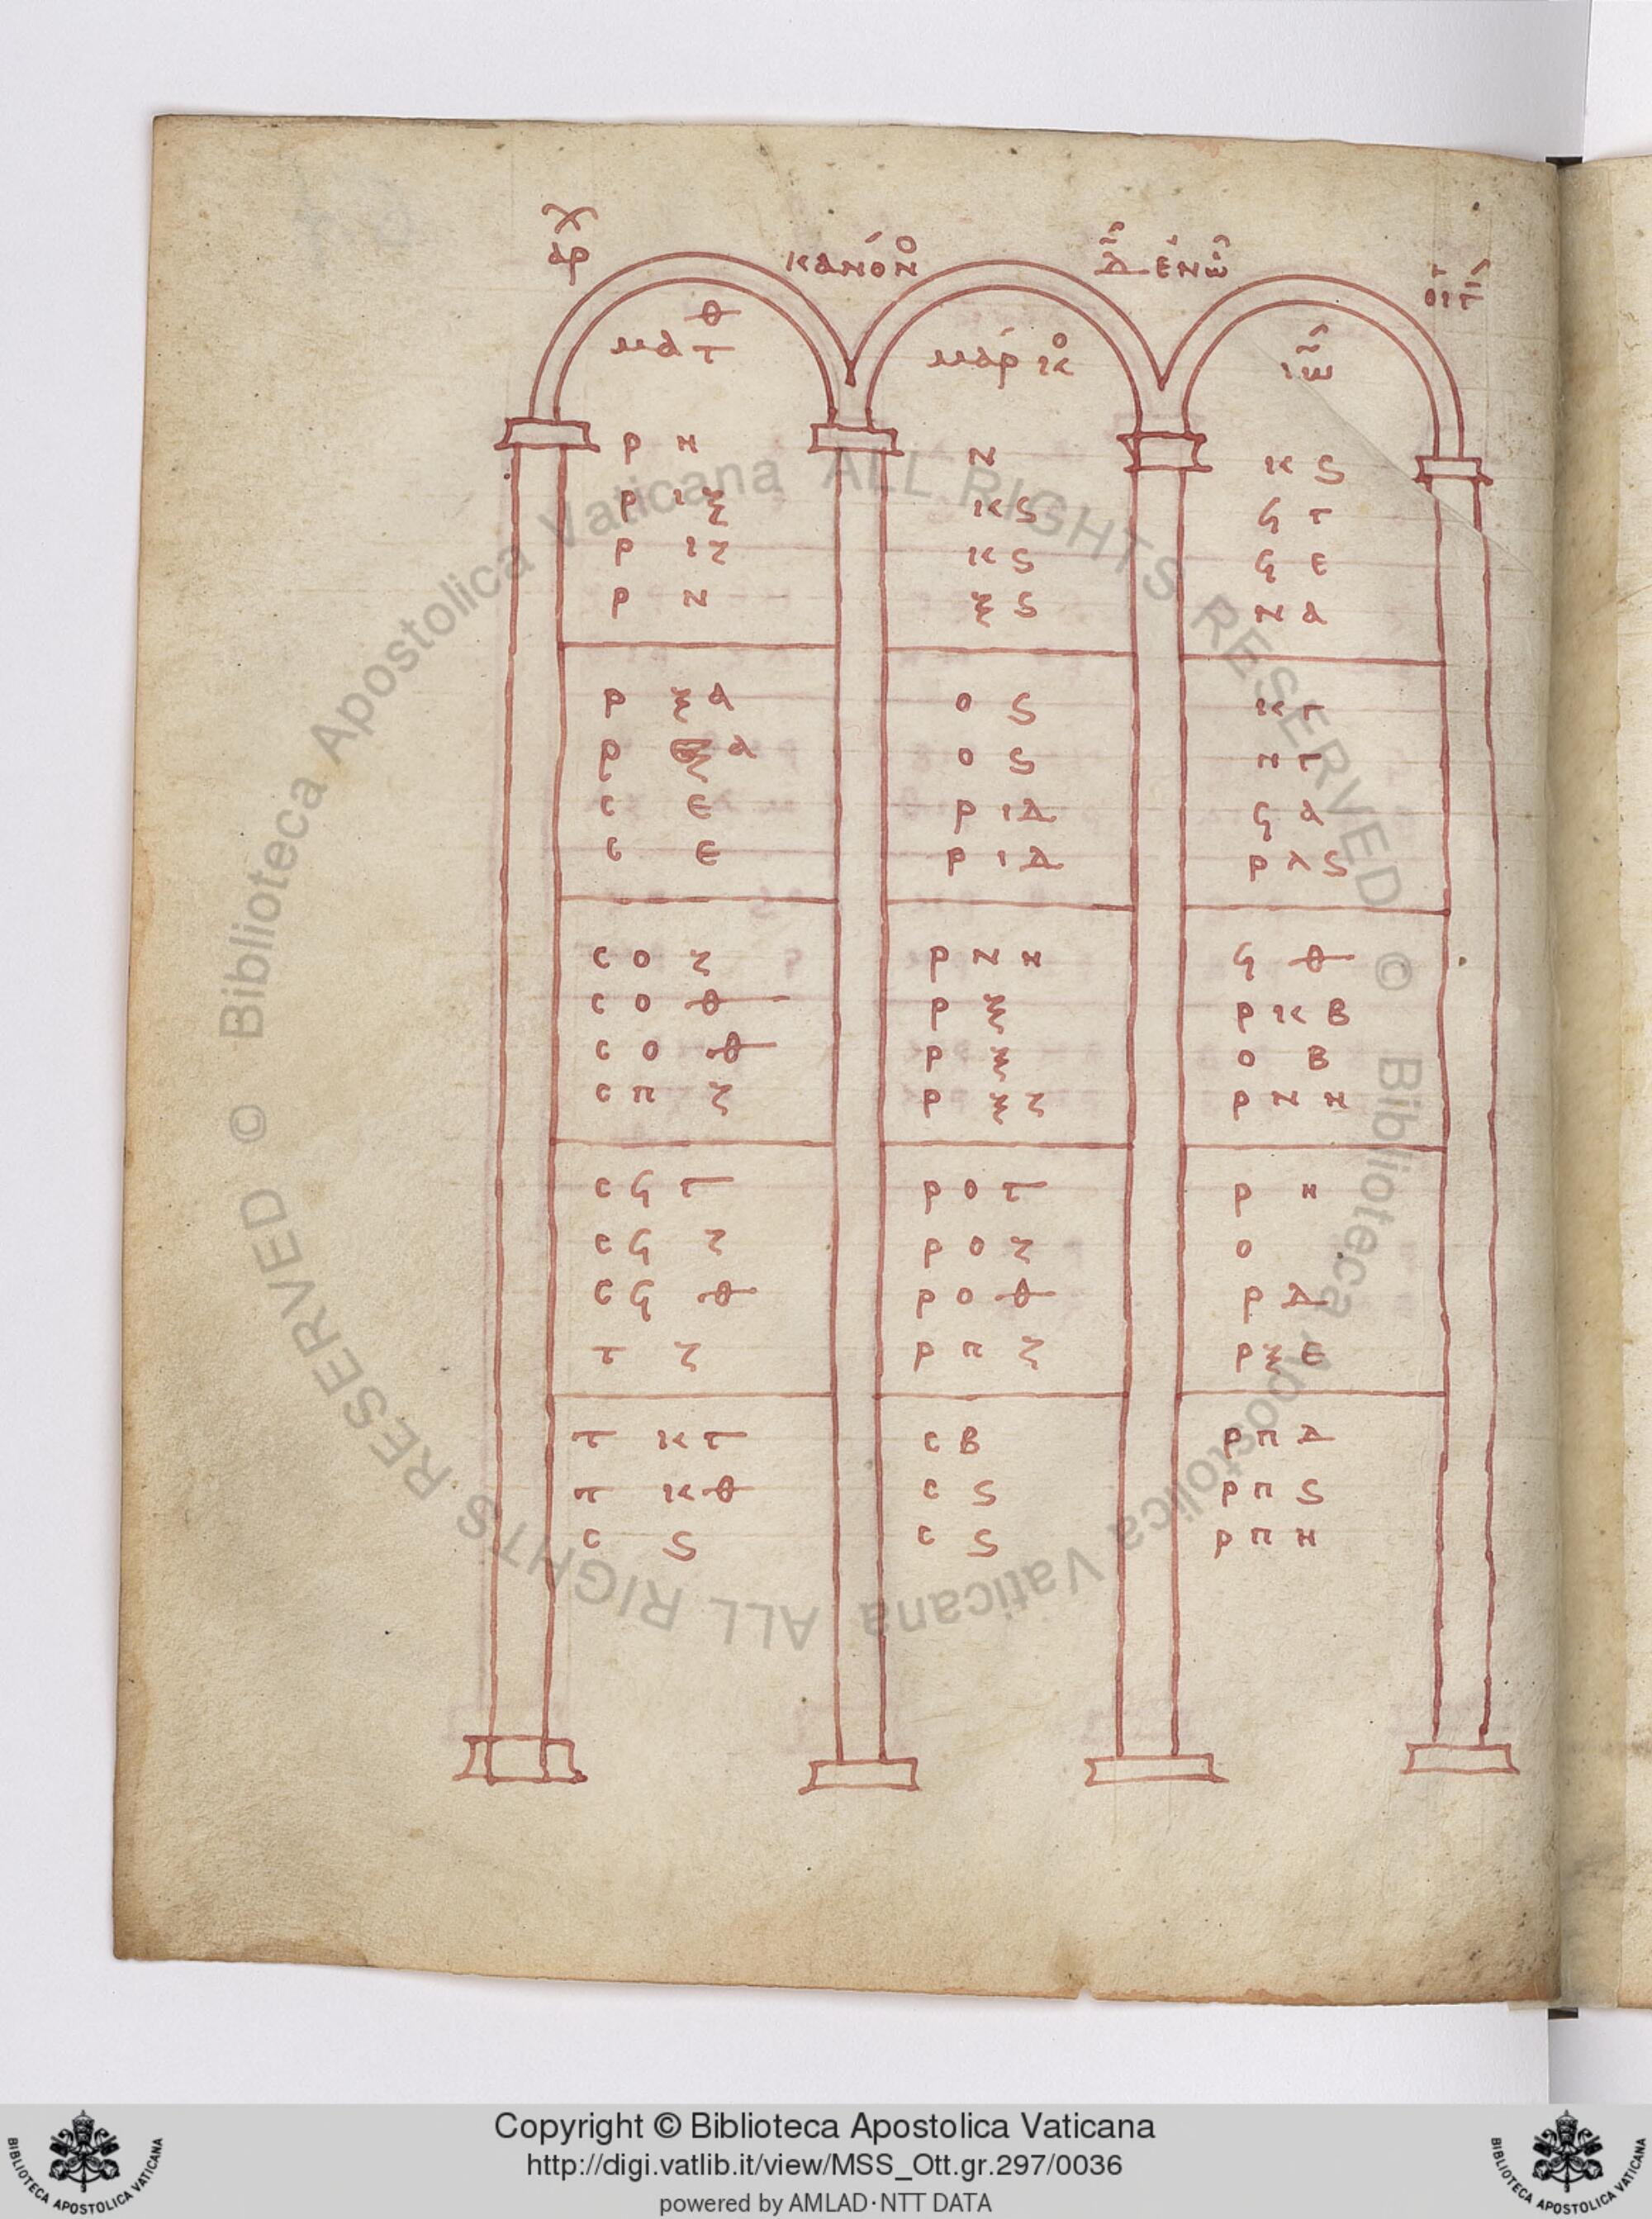 ἀρχ κανόνο Δ ἐν ὧ οἱ γ
μα τθ μάρικο ιω
ρ η ν κ ϛ
ρ ι ζ κ ϛ ϟ γ
ρ ι ζ κ ϛ ϟ ε
ρ ν ξ ϛ ν α
ρ ξ α ο ϛ κ γ
ρ ξ α ο ϛ ν γ
σ ε ρ ι δ ϟ α
σ ε ρ ι δ ρ λ ϛ
σ ο ζ ρ ν η ϟ θ
σ ο θ ρ ξ ρ κ β
σ ο θ ρ ξ ο β
σ π ζ ρ ξ ζ ρ ν η
σ ϟ γ ρ ο γ ρ η
σ ϟ ζ ρ ο ζ ο
σ ϟ θ ρ ο θ ρ δ
τ ζ ρ π ζ ρ ξ ε
τ κ γ σ β ρ π δ
τ κ θ σ ϛ ρ π ϛ
σ ϛ σ ϛ ρ π η
© Biblioteca Apostolica Vaticana ALL RIGHTS RESERVED © Biblioteca Apostolica Vaticana ALL RIGHTS RESERVED
Copyright © Biblioteca Apostolica Vaticana
http://digi.vatlib.it/view/MSS_Ott.gr.297/0036
powered by AMLAD·NTT DATA
BIBLIOTECA APOSTOLICA VATICANA
BIBLIOTECA APOSTOLICA VATICANA